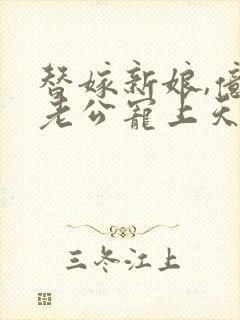 替嫁新娘,亿
老公宠上天
三冬江上